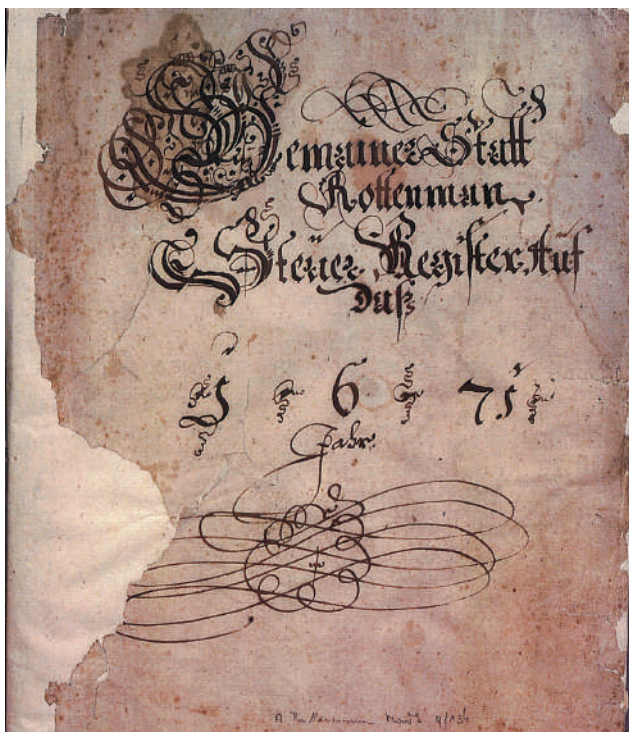 Gemainer Statt
Rottenman
Steüer Register Auf
daß
1 6 71
Jahr.
A Rottenmann